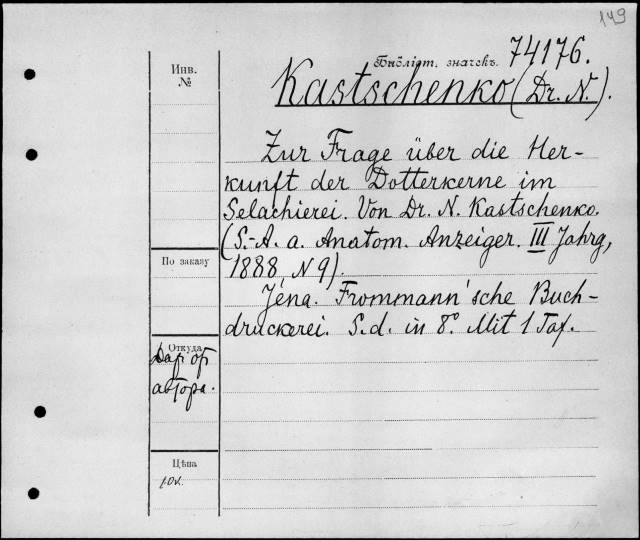 149
Инв.
№
Библіот. значекъ. 74176.
Kastschenko (Dr. N.).
Zur Frage über die Her-
kunft der Dotterkerne im
Selachierei. Von Dr. N. Kastschenko.
(S.-A. a. Anatom. Anzeiger. III Jahrg,
1888, N 9).
Jena. Frommann'sche Buch-
druckerei. S.d. in 8°. Mit 1 Taf.
По заказу
Откуда
Дар от
автора.
Цѣна